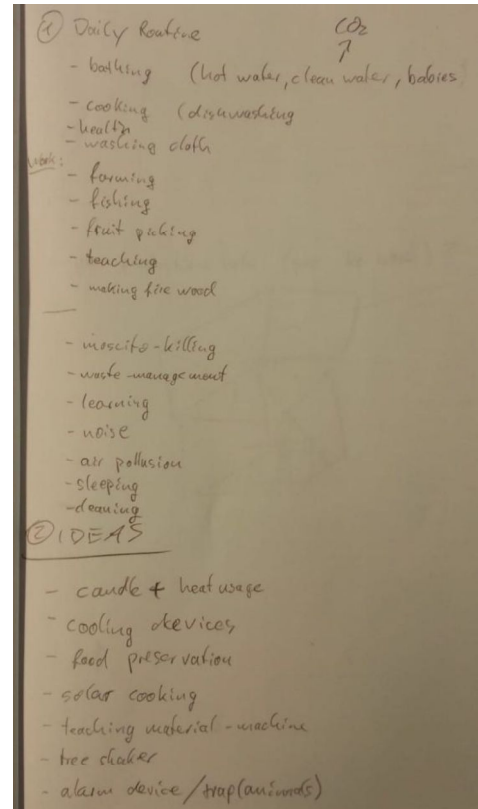 ① Daily Routine
CO2
↑
- bathing (hot water, clean water, babies)
- cooking (dishwashing
- health
- washing cloth
work:
- farming
- fishing
- fruit picking
- teaching
- making fire wood
- moscito-killing
- waste-management
- learning
- noise
- air pollusion
- sleeping
- cleaning
② IDEAS
- candle + heat usage
- cooling devices
- food preservation
- solar cooking
- teaching material-machine
- tree shaker
- alarm device / trap (animals)